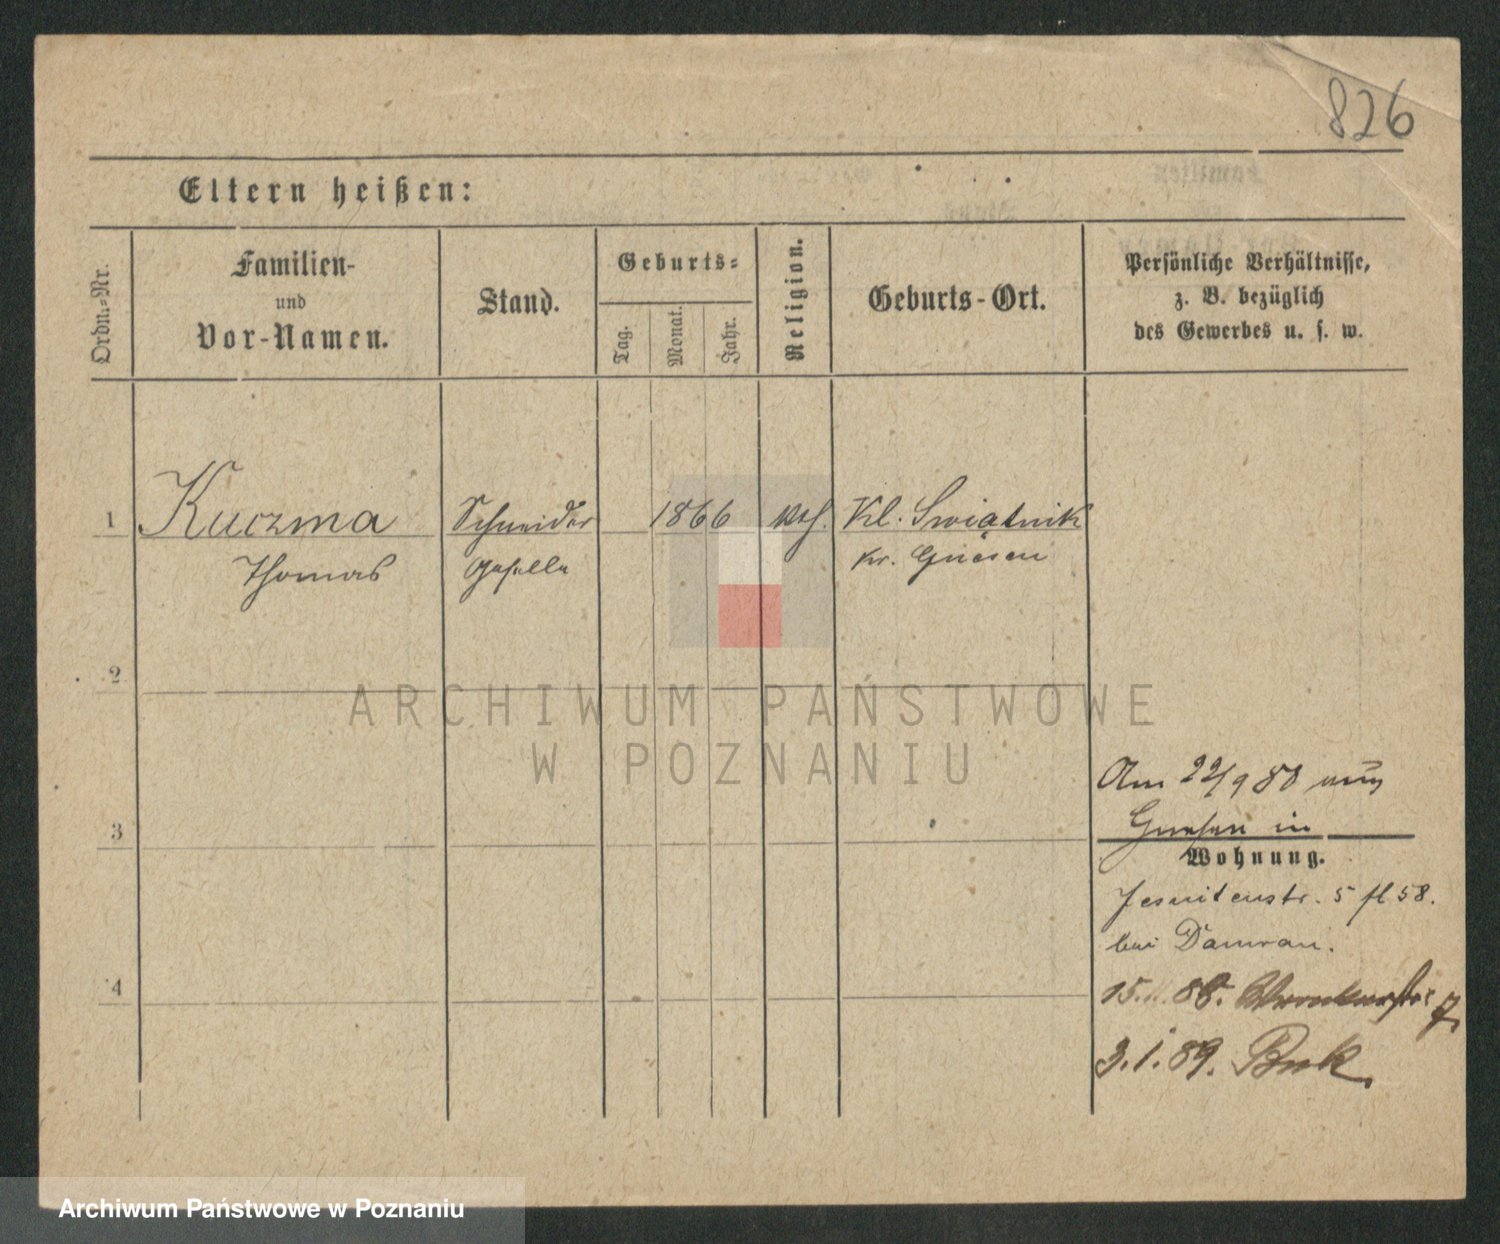 826
Eltern heißen:
Ordn.-Nr.
Familien-
und
Vor-Namen.
Stand.
Geburts-
Tag.
Monat.
Jahr.
Religion.
Geburts-Ort.
Persönliche Verhältnisse,
z. B. bezüglich
des Gewerbes u. s. w.
1 Kuczma Schneider 1866 kath. Kl. Swiątnik
Thomas Geselle Kr. Gnesen
2
ARCHIWUM PAŃSTWOWE
W POZNANIU
Am 22/9 88 aus
3 Gnesen in
Wohnung.
Jesuitenstr. 5 fl 58.
bei
4 15.11.88. Wronkerstr 7
3.1.89.
Archiwum Państwowe w Poznaniu